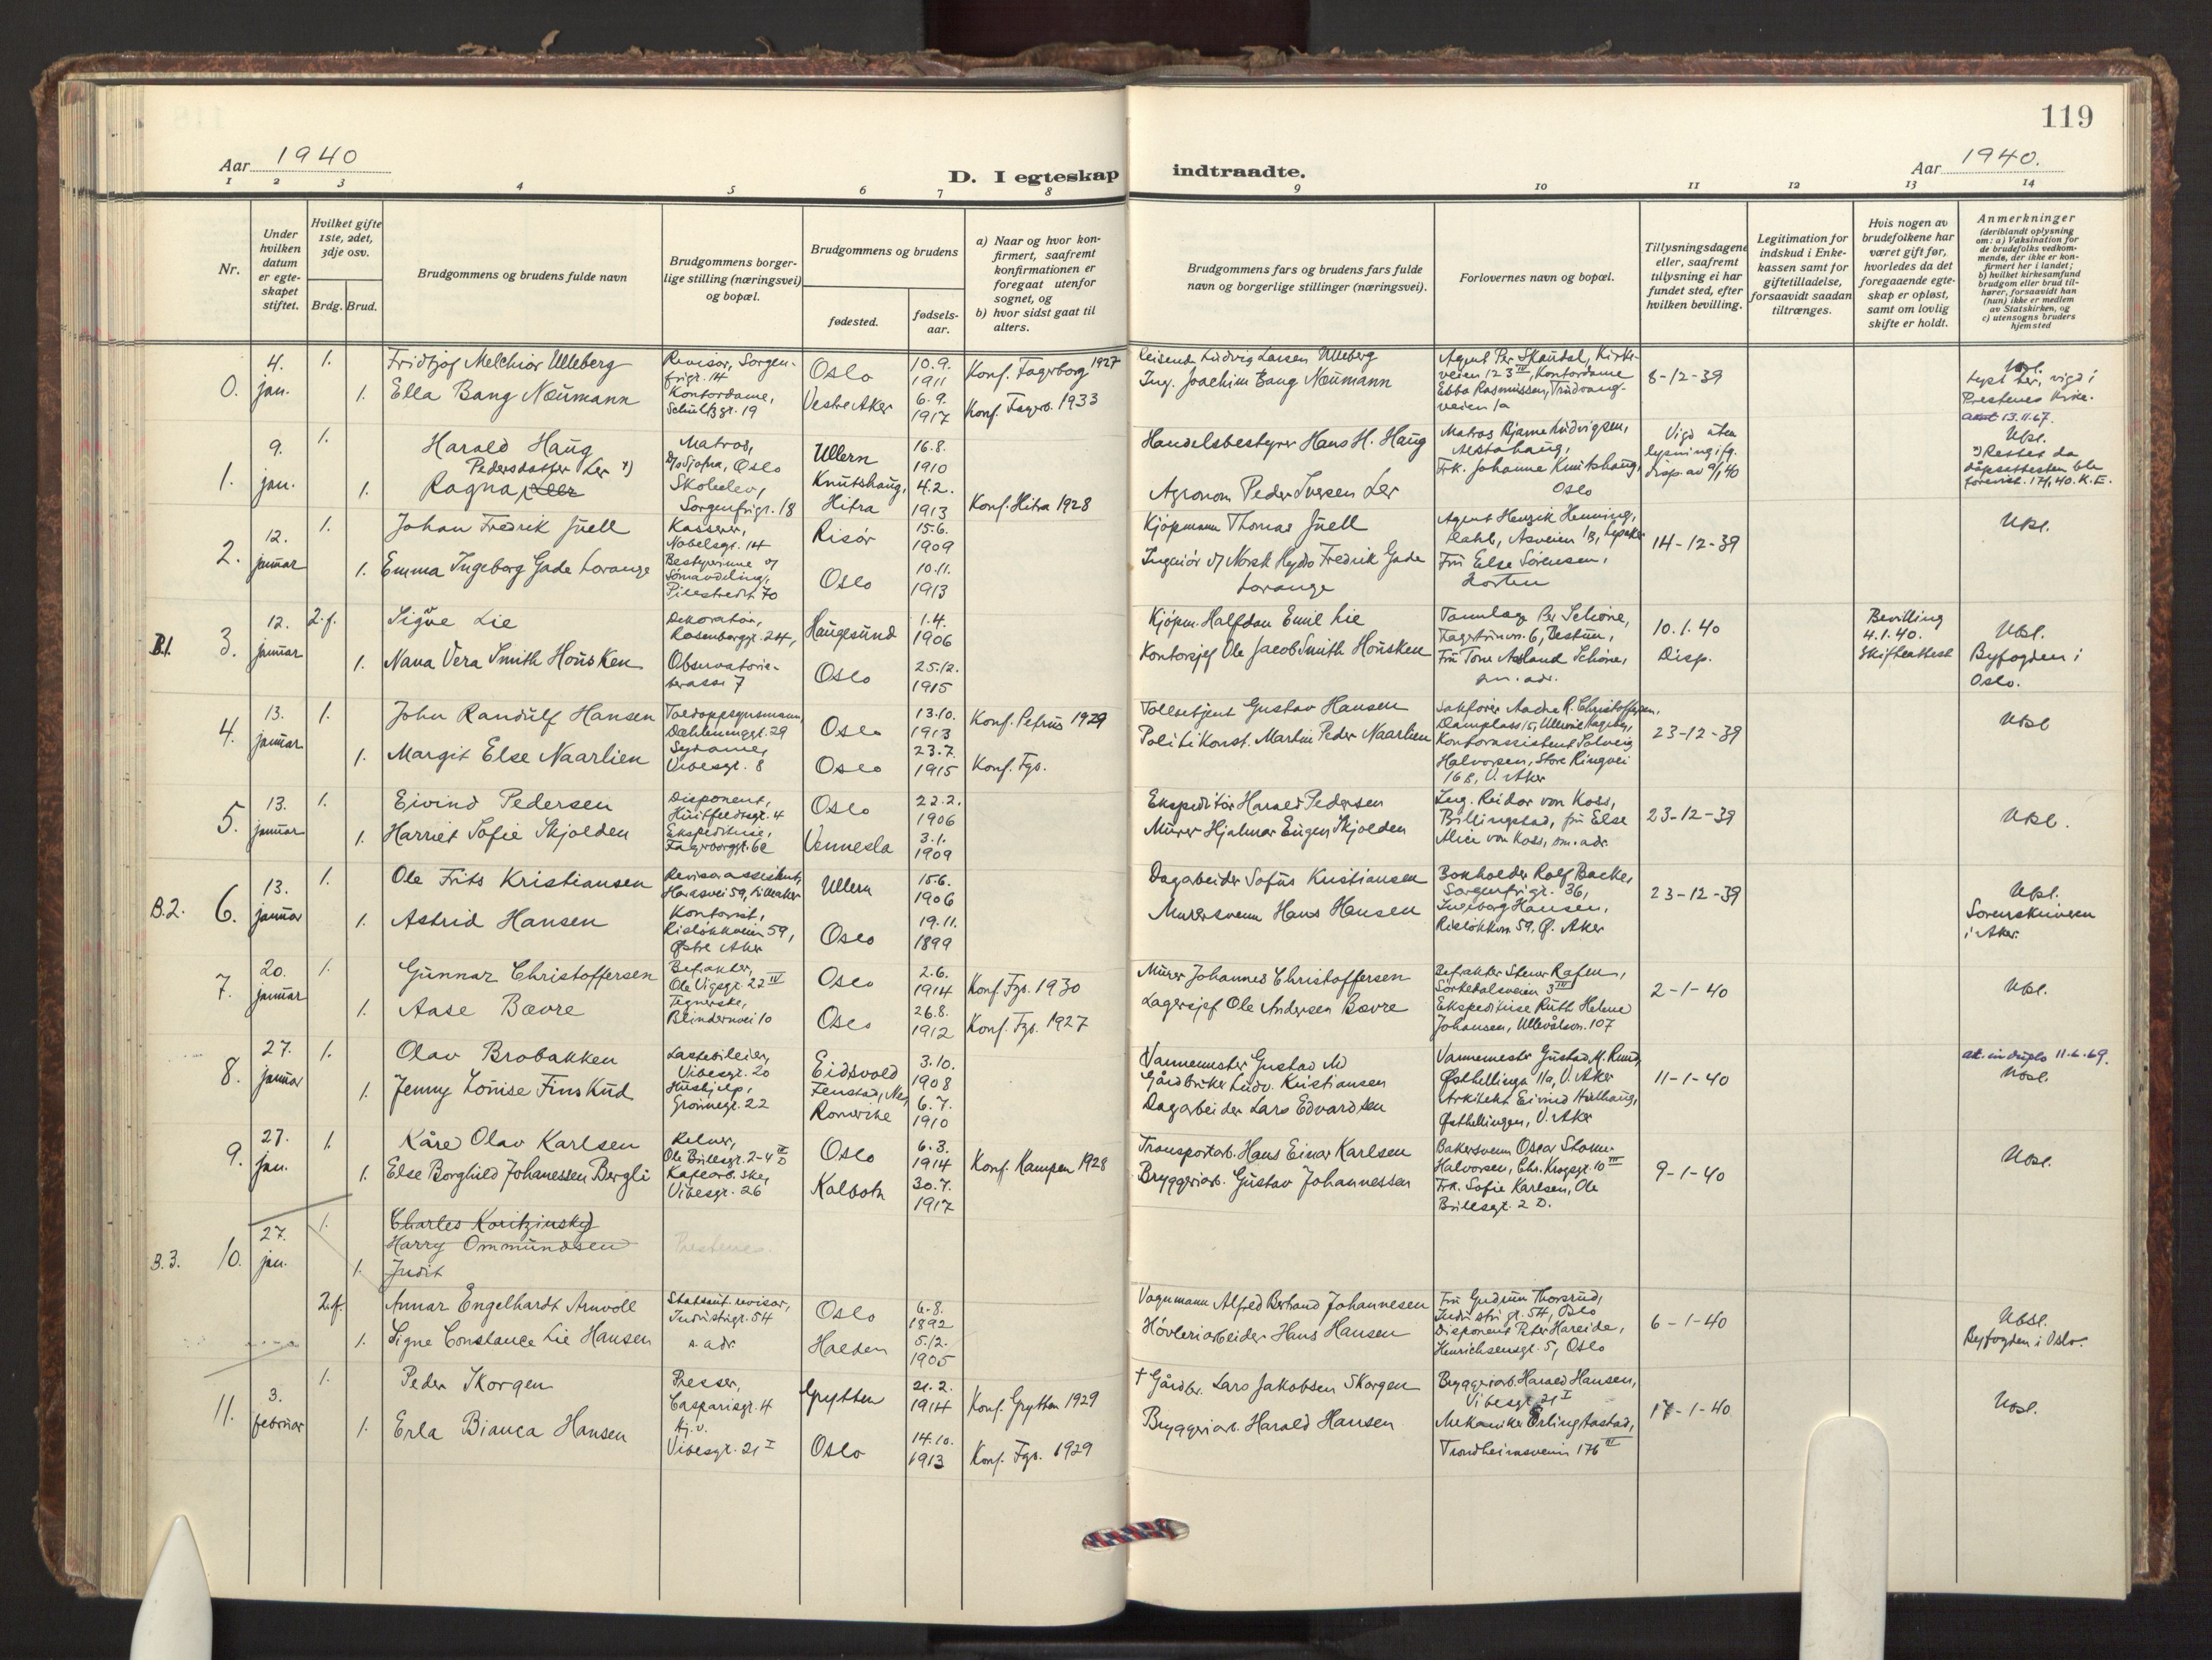 119
Aar 1940
D. I egteskap indtraadte.
Aar 1940.
1 2 3 4 5 6 7 8 9 10 11 12 13 14
Nr.
Under hvilken datum er egteskapet stiftet.
Hvilket gifte 1ste, 2det, 3dje osv.
Brdg. Brud.
Brudgommens og brudens fulde navn
Brudgommens borgerlige stilling (næringsvei) og bopæl.
Brudgommens og brudens
fødested.
fødselsaar.
a) Naar og hvor konfirmert, saafremt konfirmationen er foregaat utenfor sognet, og
b) hvor sidst gaat til alters.
Brudgommens fars og brudens fars fulde navn og borgerlige stillinger (næringsvei).
Forlovernes navn og bopæl.
Tillysningsdagene eller, saafremt tillysning ei har fundet sted, efter hvilken bevilling.
Legitimation for indskud i Enkekassen samt for giftetilladelse, forsaavidt saadan tiltrænges.
Hvis nogen av brudefolkene har været gift før, hvorledes da det foregaaende egteskap er opløst, samt om lovlig skifte er holdt.
Anmerkninger
(deriblandt oplysning om: a) Vaksination for de brudefolks vedkommende, der ikke er konfirmert her i landet;
b) hvilket kirkesamfund brudgom eller brud tilhører, forsaavidt han (hun) ikke er medlem av Statskirken, og
c) utensogns bruders hjemsted
0. 4. jan. 1. Fridtjof Melchior Ulleberg Revisor, Sorgenfrigt. 14 Oslo 10.9. 1911 Konf. Fagerborg 1927 Reisende Ludvig Larsen Ulleberg Agent Per Skandal, Kirkeveien 123 IV, Kontordame Ebba Rasmussen, Trudvangveien 1a 8-12-39
1. Ella Bang Neumann Kontordame, Schultzgt. 19 Vestre Aker 6.9. 1917 Konf. Fagerb. 1933 Ing. Joachim Bang Neumann
Lyst her, vigd i Prestenes kirke. 13.11.67.
1. 9. jan. 1. Harald Haug Matros, D/s Sjofna, Oslo Ullern 16.8. 1910 Handelsbestyrer Hans H. Haug Matros Bjarne Ludvigsen, Alstahaug, Frk. Johanne Knutshaug, Oslo Vigd uten lysning ifg. disp. av 9/1 40 Ubl.
1. Ragna Pedersdatter Ler x) Skoleelev, Sorgenfrigt. 18 Knutshaug, Hitra 4.2. 1913 Konf. Hitra 1928 Agronom Peder Iversen Ler
x) Rettet da dåpsattesten ble
2. 12. januar 1. Johan Fredrik Juell Kasserer, Nobelsgt. 14 Risör 15.6. 1909 Kjöpmann Thomas Juell Agent Henrik Henning Dahl, Åsveien 13, Lysaker 14-12-39 Ubl.
1. Emma Ingeborg Gade Lorange Bestyrerinne Pilestredet 70 Oslo 10.11. 1913 Ingeniör v/ Norsk Hydro Fredrik Gade Lorange Fru Else Sörensen, Horten
B.1. 3. 12. januar 2.f. Sigve Lie Dekoratör, Rosenborggt. 24, Haugesund 1.4. 1906 Kjöpm. Halfdan Emil Lie Tannlæge Per Schöne, Vestun, 10.1.40 Disp. Bevilling 4.1.40. Skifteattest Ubl.
1. Nana Vera Smith Housken Observatorieterasse 7 Oslo 25.12. 1915 Kontorsjef Ole Jacob Smith Housken Fru Tone Aasland Schöne, sm. adr. Byfogden i Oslo.
4. 13. januar 1. John Randulf Hansen Toldoppsynsmann, Dahlenenggt. 29 Oslo 13.10. 1913 Konf. Petrus 1929 Tollbetjent Gustav Hansen Damplass 15, Ullevål Hageby, 23-12-39 Ubl
1. Margit Else Naarlien Sydame, Vibesgt. 8 Oslo 23.7. 1915 Konf. Fgb. Politikonst. Martin Peder Naarlien Kontorassistent Solveig Halvorsen, Store Ringvei 16 B, V. Aker
5. 13. januar 1. Eivind Pedersen Disponent, Huitfeldtsgt. 4 Oslo 22.2. 1906 Ekspeditör Harald Pedersen Ing. Reidar von Koss, Billingstad, fru Else Alice von Koss, sm. adr. 23-12-39 Ubl.
1. Harriet Sofie Skjolden Ekspeditrise, Fagerborggt. 6e Vennesla 3.1. 1909 Murer Hjalmar Eugen Skjolden
B.2. 6. 13. januar 1. Ole Frits Kristiansen Revisorassistent, Ullern 15.6. 1906 Dagarbeider Sofus Kristiansen Bokholder Rolf Backe, Sorgenfrigt. 36, 23-12-39 Ubl.
1. Astrid Hansen Kontorist, Rislökkveien 59, Østre Aker Oslo 19.11. 1899 Murersvenn Hans Hansen Ingeborg Hansen, Rislökkvn. 59, Ø. Aker Sorenskriveren i Aker.
7. 20. januar 1. Gunnar Christoffersen Befrakter, Ole Vigsgt. 22 IV Oslo 2.6. 1914 Konf. Fgb. 1930 Murer Johannes Christoffersen Befrakter Steinar Rafen, Sörkedalsveien 3 III 2-1-40 Ubl.
1. Aase Bævre Tegnerske, Blindernvei 10 Oslo 26.8. 1912 Konf. Fgb. 1927 Lagersjef Ole Andersen Bævre Ekspeditrise Ruth Helene Johansen, Ullevålsvn. 107
8. 27. januar 1. Olav Brobakken Lastebileier, Vibesgt. 20 Eidsvold 3.10. 1908 Vannmester Gustav M Vannmester Gustav M. Rund, Østhellinga 11a, V. Aker 11-1-40 att. in duplo 11.6.69. Ubl.
1. Jenny Louise Finskud Hushjelp, Grönnegt. 22 Fenstad, Nes, Romerike 6.7. 1910 Gårdbruker Ludv. Kristiansen
Dagarbeider Lars Edvardsen Arkitekt Eivind Østhellingen, V. Aker
9. 27. jan. 1. Kåre Olav Karlsen Kelner, Ole Bullsgt. 2-4 Oslo 6.3. 1914 Konf. Kampen 1928 Transportarb. Hans Einar Karlsen Bakersvenn Oscar Halvorsen, Chr. Krogsgt. 10 III 9-1-40 Ubl.
1. Else Borghild Johanessen Bergli Kafearb.ske, Vibesgt. 26 Kolbotn 30.7. 1917 Bryggeriarb. Gustav Johannessen Frk. Sofie Karlsen, Ole Bullsgt. 2 D.
B.3. 10. 27. jan. 1. Charles Koritzinsky
Harry Ommundsen Prestenes.
1. Judit
2.f. Annar Engelhardt Arnvoll Statsaut. revisor, Industrigt. 54 Oslo 6.8. 1892 Vognmann Alfred Bertrand Johannesen Fru Gudrun Thorsrud, Industrigt. 54, Oslo 6-1-40 Ubl.
1. Signe Constance Lie Hansen s. adr. Halden 5.12. 1905 Hövleriarbeider Hans Hansen Disponent Peter Hareide, Henrichsensgt. 5, Oslo Byfogden i Oslo.
11. 3. februar 1. Peder Skorgen Presser, Casparisgt. 4 Grytten 21.2. 1914 Konf. Grytten 1929 † Gårdbr. Lars Jakobsen Skorgen Bryggeriarb. Harald Hansen, Vibesgt. 21 I 17-1-40 Ubl.
1. Erla Bianca Hansen Vibesgt. 21 I Oslo 14.10. 1913 Konf. Fgb. 1929 Bryggeriarb. Harald Hansen Mekaniker Erling Aastad, Trondheimsveien 176 III